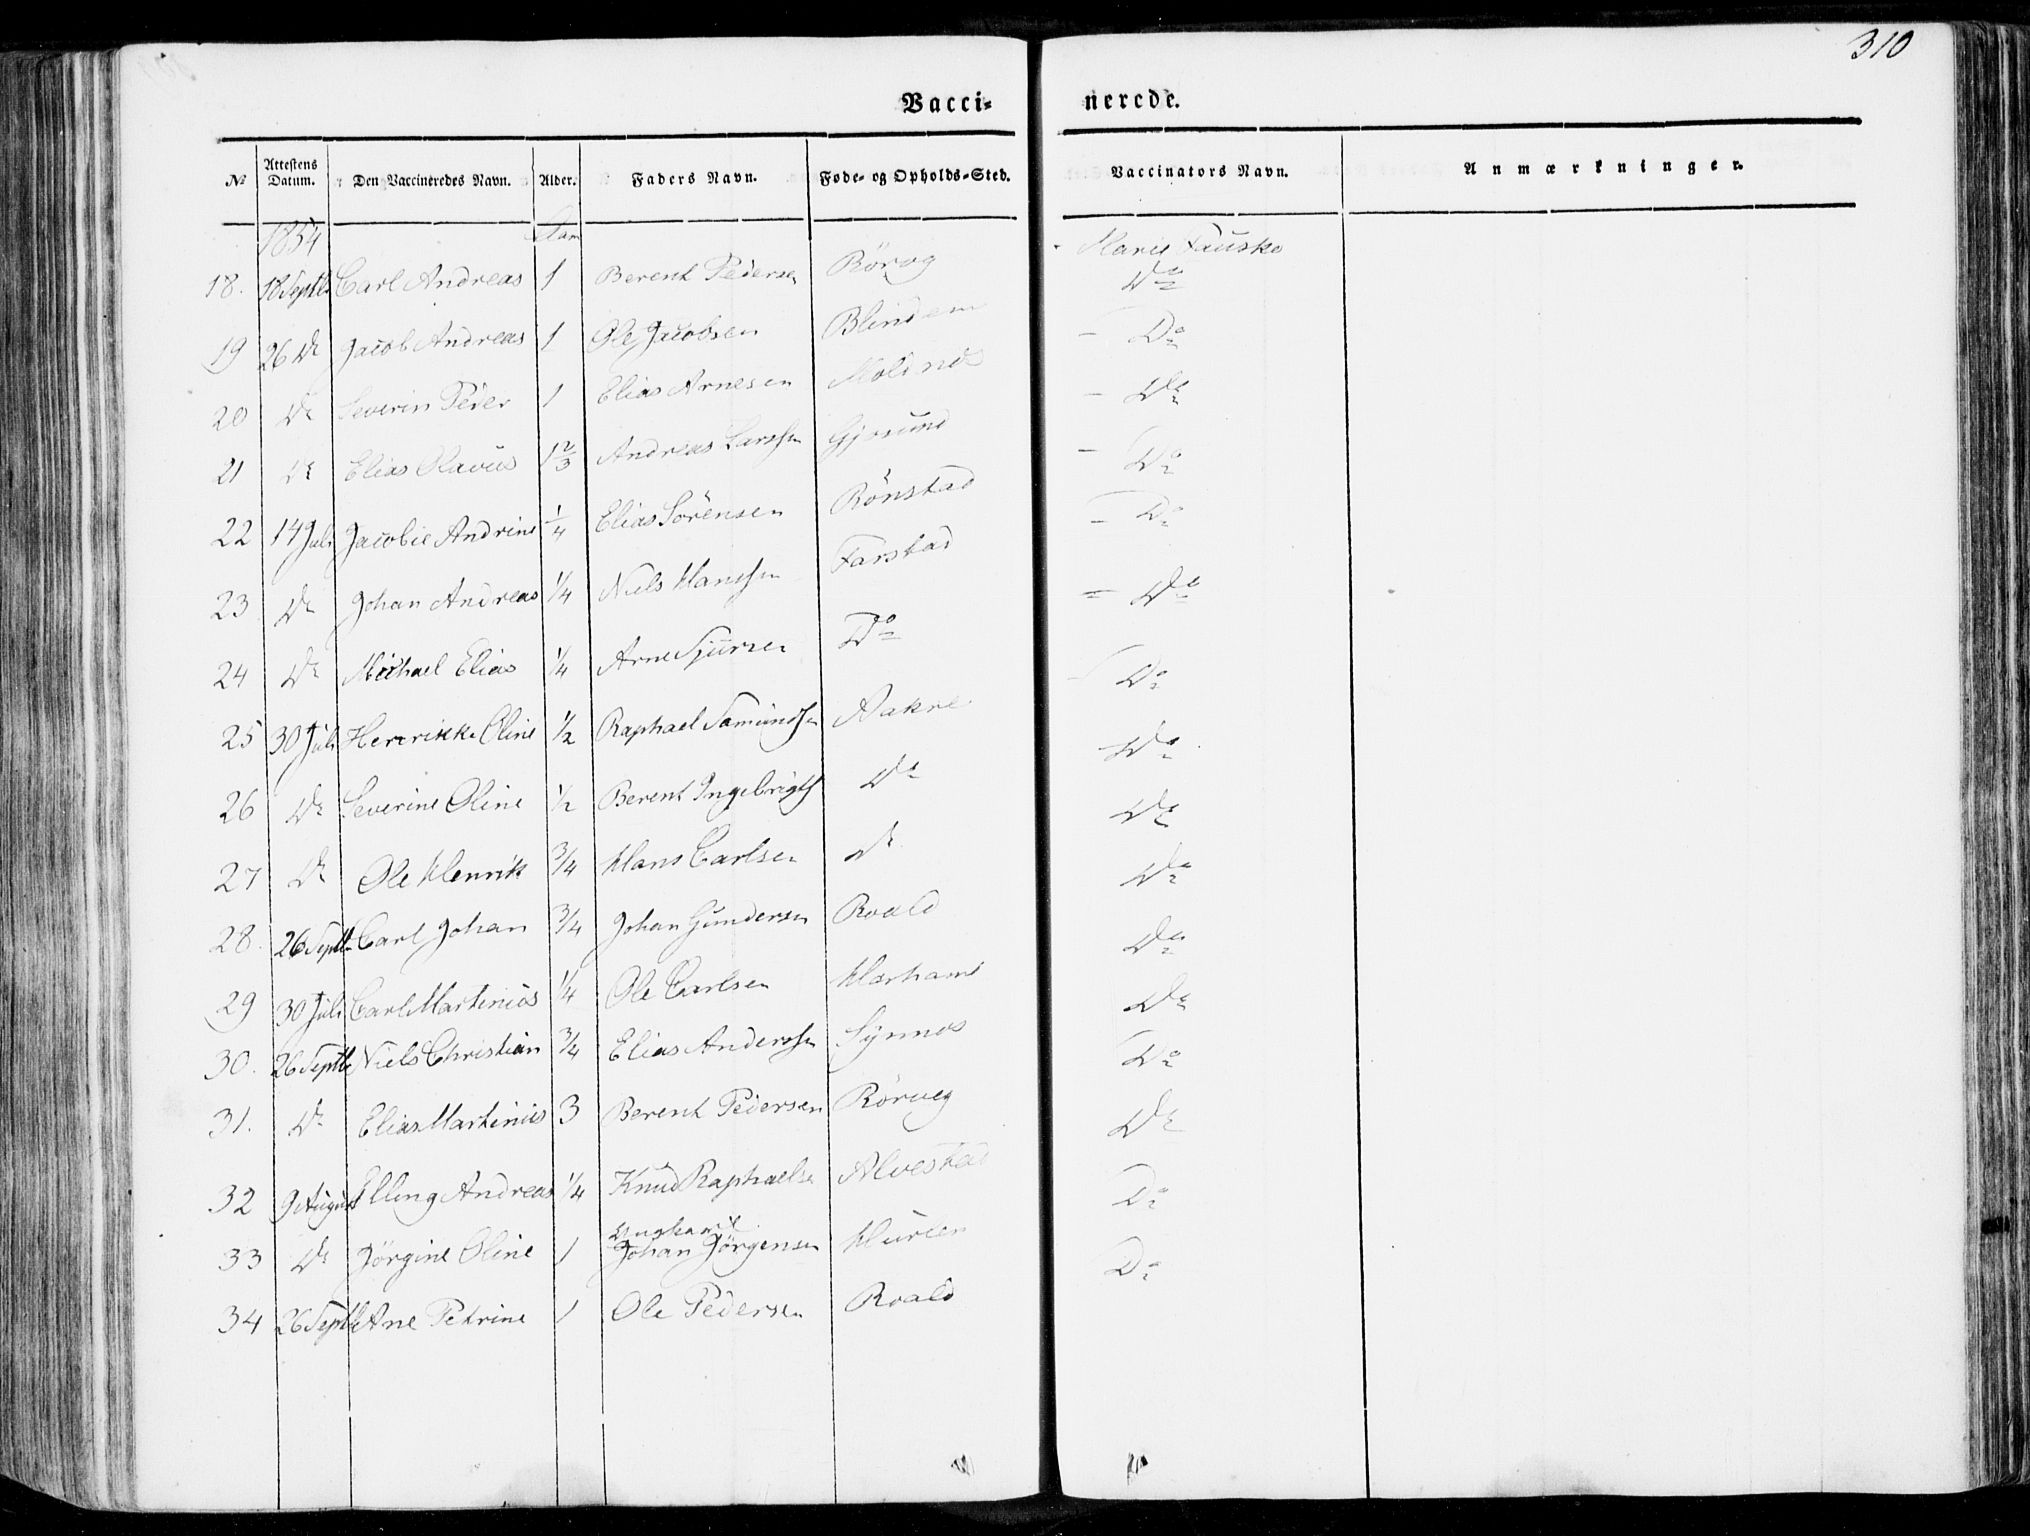 310
Vacci- nerede.
No Attestens Datum. Den Vaccineredes Navn. Alder. Faders Navn. Føde- og Opholds-Sted. Vaccinators Navn. Anmærkninger.
1854 Aar
18. 18 Septbr Carl Andreas 1 Berent Pedersen Rörvog Marie Fauske
19 26 Do Jacob Andreas 1 Ole Jacobsen Blindem Do
20 Do Severin Peder 1 Elias Arnesen Moldnes Do
21 Do Elias Olavus 1 2/3 Andreas Larssen Gjosund Do
22 14 Juli Jacobie Andrine 1/4 Elias Sörensen Rönstad Do
23 Do Johan Andreas 1/4 Niels Hanssen Farstad Do
24 Do Michael Elias 1/4 Arne Sjursen Do Do
25 30 Juli Henrikke Oline 1/2 Raphael Samundsen Aakre Do
26 Do Severine Oline 1/2 Berent Ingebrigts Do Do
27 Do Ole Henrik 3/4 Hans Carlsen Do Do
28. 26 Septbr Carl Johan 3/4 Johan Gundersen Roald Do
29 30 Juli Carl Martinus 1/4 Ole Carlsen Harhams Do
30. 26 Septbr Niels Christian 3/4 Elias Anderssen Synnes Do
31. Do Elias Martinus 3 Berent Pedersen Rörveg Do
32 9 August Elling Andreas 1/4 Knud Raphaelse Alvestad Do
33 Do Jörgine Oline 1 Ungkarl Johan Jörgensen Hurlen Do
34 26 Septbr Ane Petrine 1 Ole Pedersen Roald Do